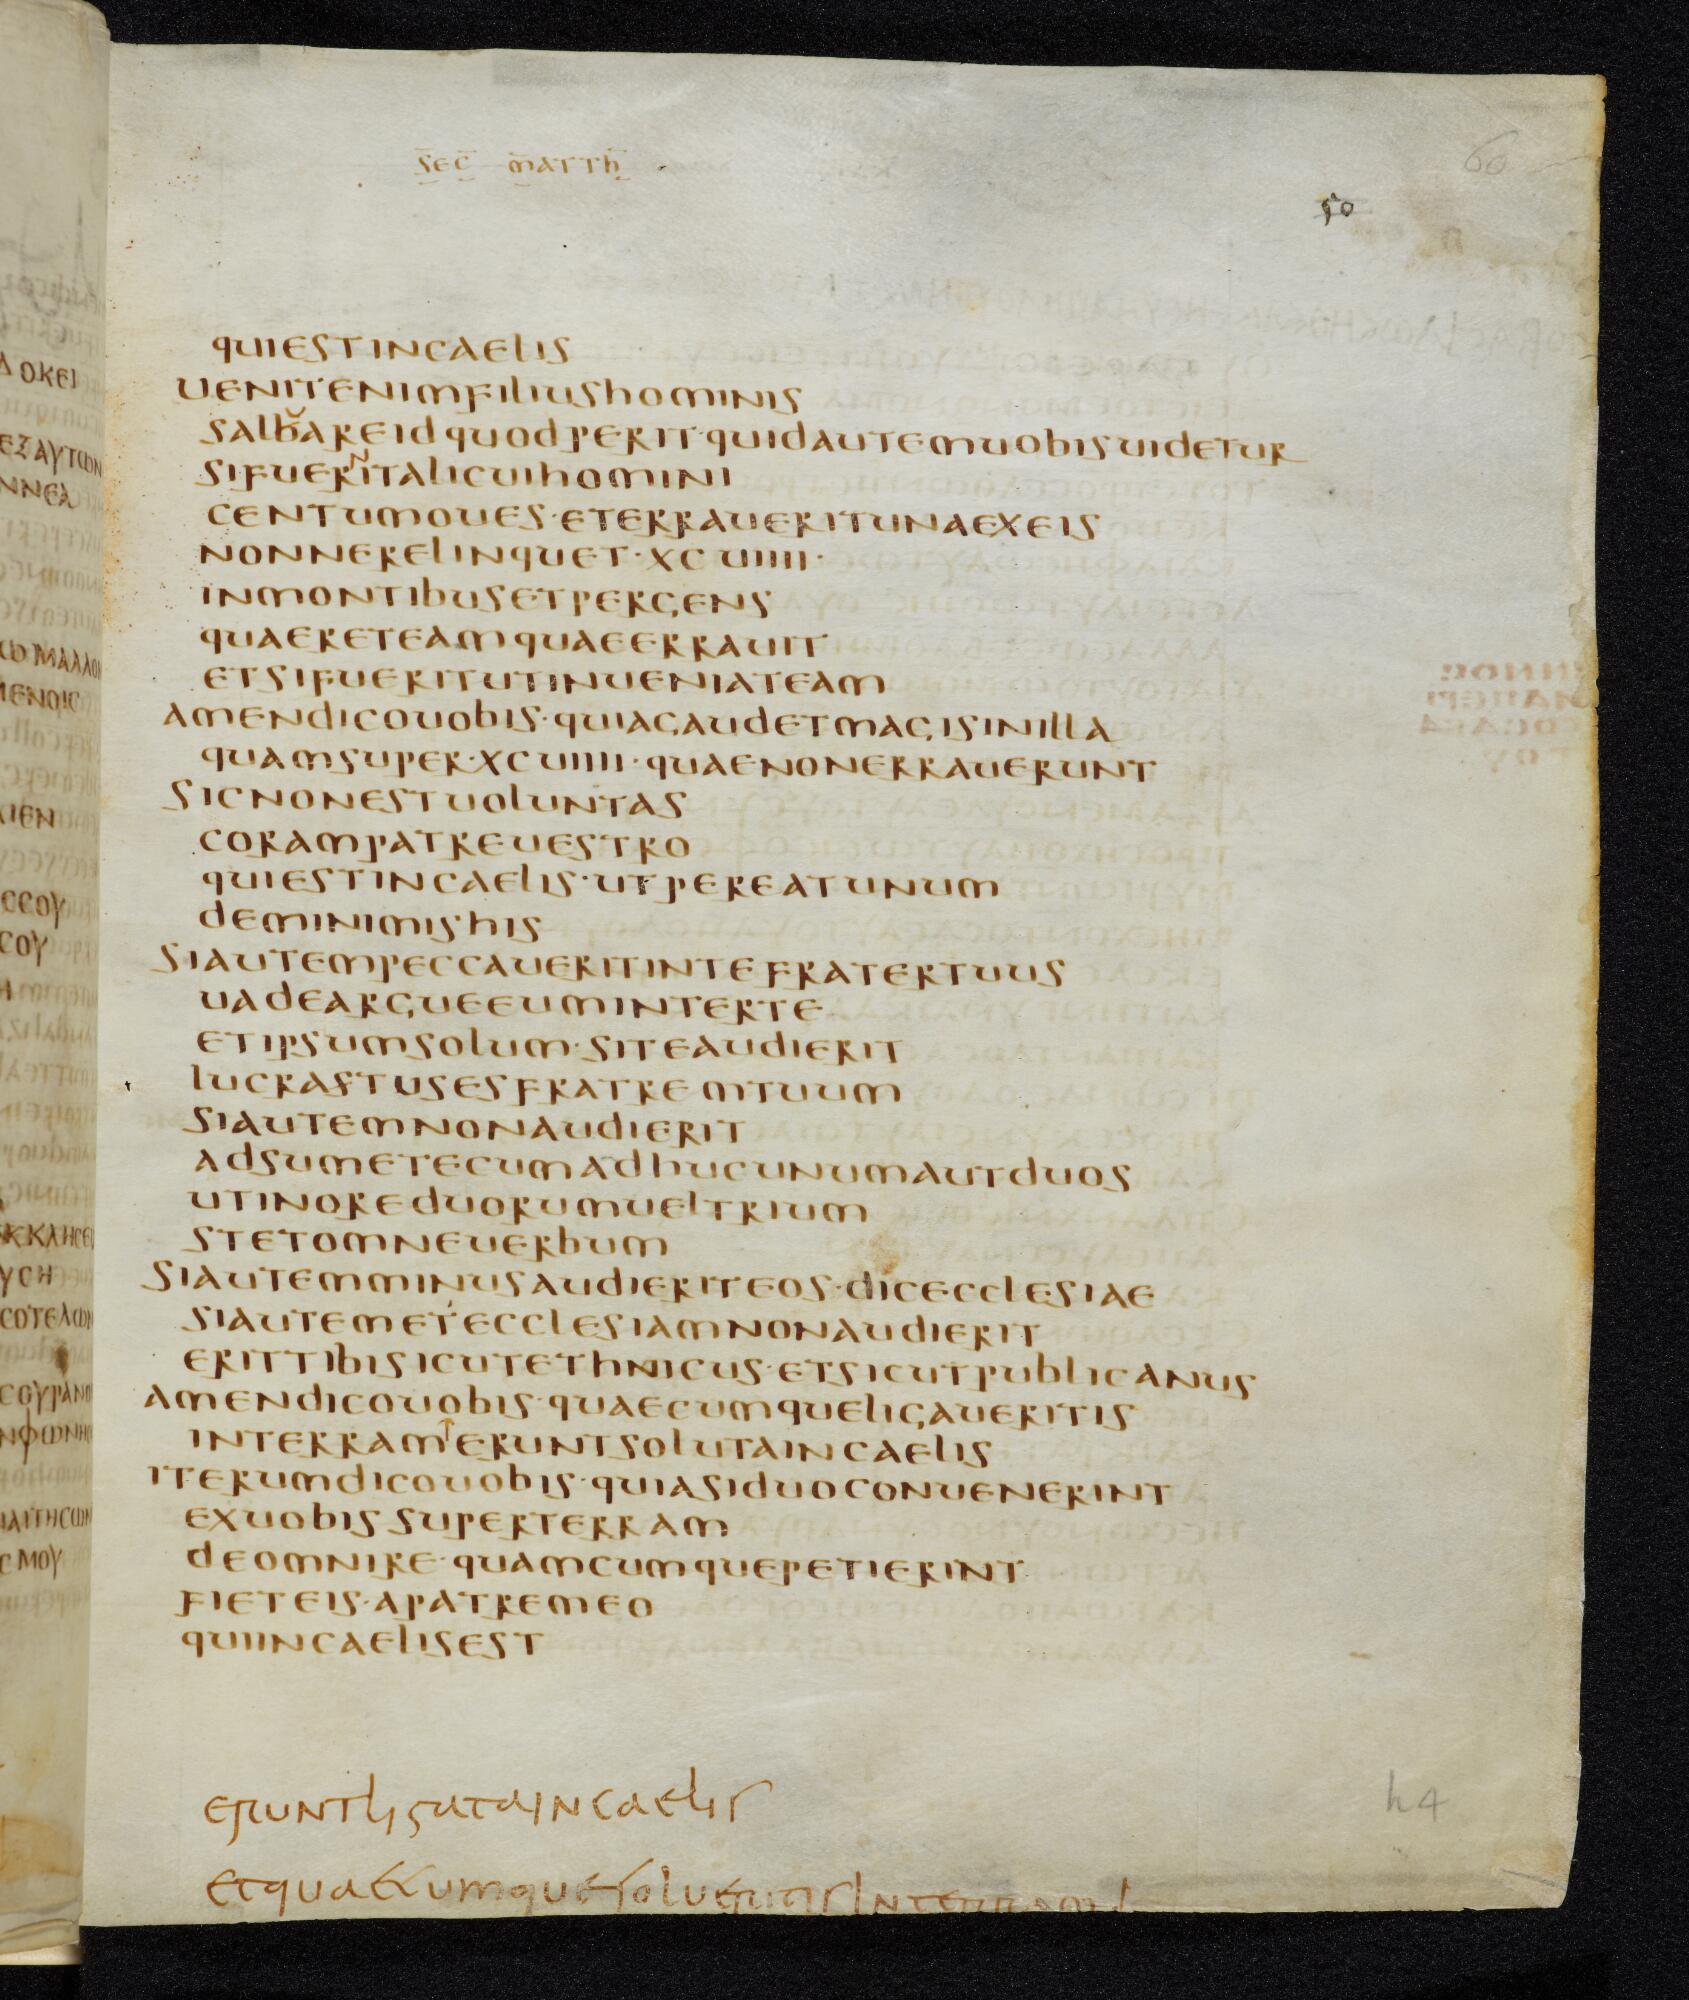 SEC MATTH
60
50
QUIESTINCAELIS
UENITENIMFILIUSHOMINIS
SALBAREIDQUODPERIT·QUIDAUTEMUOBISUIDETUR
SIFUERINTALICUIHOMINI
CENTUMOUES·ETERRAUERITUNAEXEIS
NONNERELINQUET·XCUIIII·
INMONTIBUSETPERGENS
QUAERETEAMQUAEERRAUIT
ETSIFUERITUTINUENIATEAM
AMENDICOUOBIS·QUIAGAUDETMAGISINILLA
QUAMSUPER·XCUIIII·QUAENONERRAUERUNT
SICNONESTUOLUNTAS
CORAMPATREUESTRO
QUIESTINCAELIS·UTPEREATUNUM
DEMINIMISHIS
SIAUTEMPECCAUERITINTEFRATERTUUS
UADEARGUEEUMINTERTE
ETIPSUMSOLUM·SITEAUDIERIT
LUCRASTUSESFRATREMTUUM
SIAUTEMNONAUDIERIT
ADSUMETECUMADHUCUNUMAUTDUOS
UTINOREDUORUMUELTRIUM
STETOMNEUERBUM
SIAUTEMMINUSAUDIERITEOS·DICECCLESIAE
SIAUTEMETECCLESIAMNONAUDIERIT
ERITTIBISICUTETHNICUS·ETSICUTPUBLICANUS
AMENDICOUOBIS·QUAECUMQUELIGAUERITIS
INTERRAMERUNTSOLUTAINCAELIS
ITERUMDICOUOBIS·QUIASIDUOCONUENERINT
EXUOBISSUPERTERRAM
DEOMNIRE·QUAMCUMQUEPETIERINT
FIETEIS·APATREMEO
QUIINCAELISEST
ERUNTLIGATAINCAELIS
ETQUAECUMQUESOLUERITISINTERRAM
h4